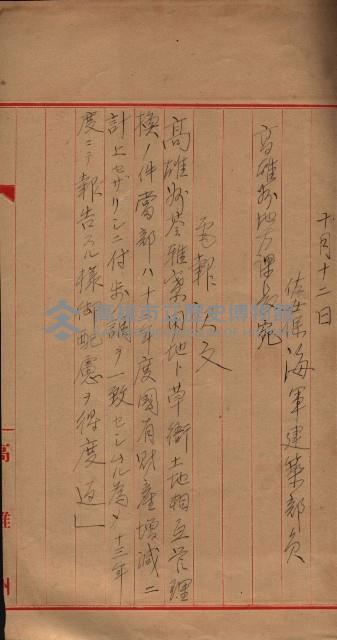 十月十二日
佐世保海軍建築部員
高雄州地方課長宛
電報 文
高雄州苓雅寮 地ト草衙土地相互管理
換ノ件當部ハ十二年度國有財産增減ニ
計上セザリシニ付歩調ヲ一致セシムル為メ十三年
度ニテ報告スル様御配慮ヲ得度 返」
高雄市立歷史博物館
高雄州